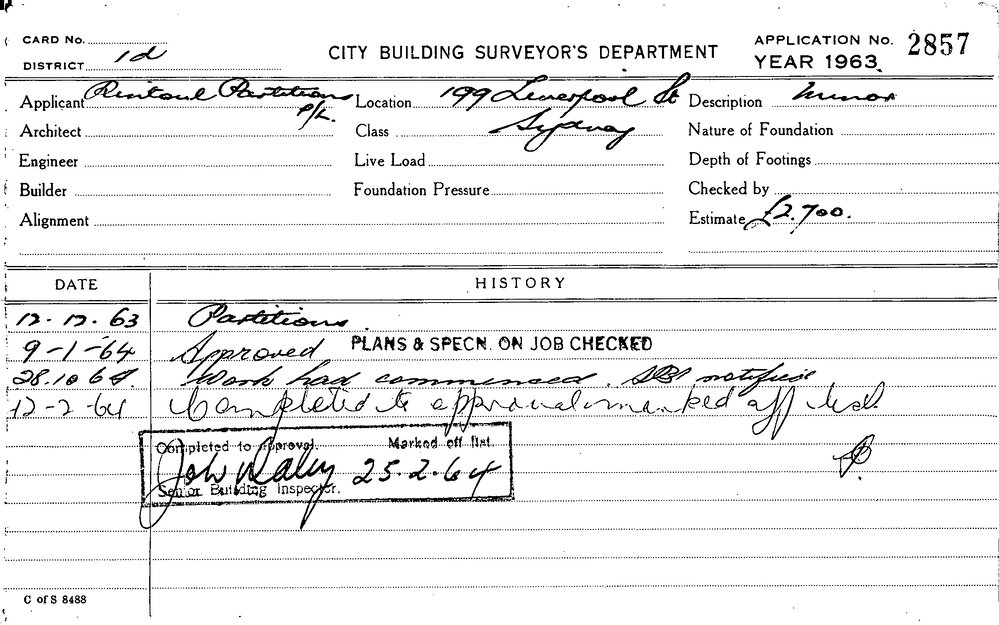 CARD No.
DISTRICT 1d
CITY BUILDING SURVEYOR'S DEPARTMENT
APPLICATION No. 2857
YEAR 1963.
Applicant Rintoul Partitions P/L. Location 199 Liverpool St Description Minor
Architect Class Sydney Nature of Foundation
Engineer Live Load Depth of Footings
Builder Foundation Pressure Checked by
Alignment Estimate £2,700.
DATE HISTORY
12.12.63 Partitions.
9-1-64 Approved PLANS & SPECN. ON JOB CHECKED
28.10.64. Work had commenced. SBI notified
12-2-64 Completed to approval marked off list.
Completed to approval. Marked off list.
John Daley 25-2-64
Senior Building Inspector.
C of S 8488